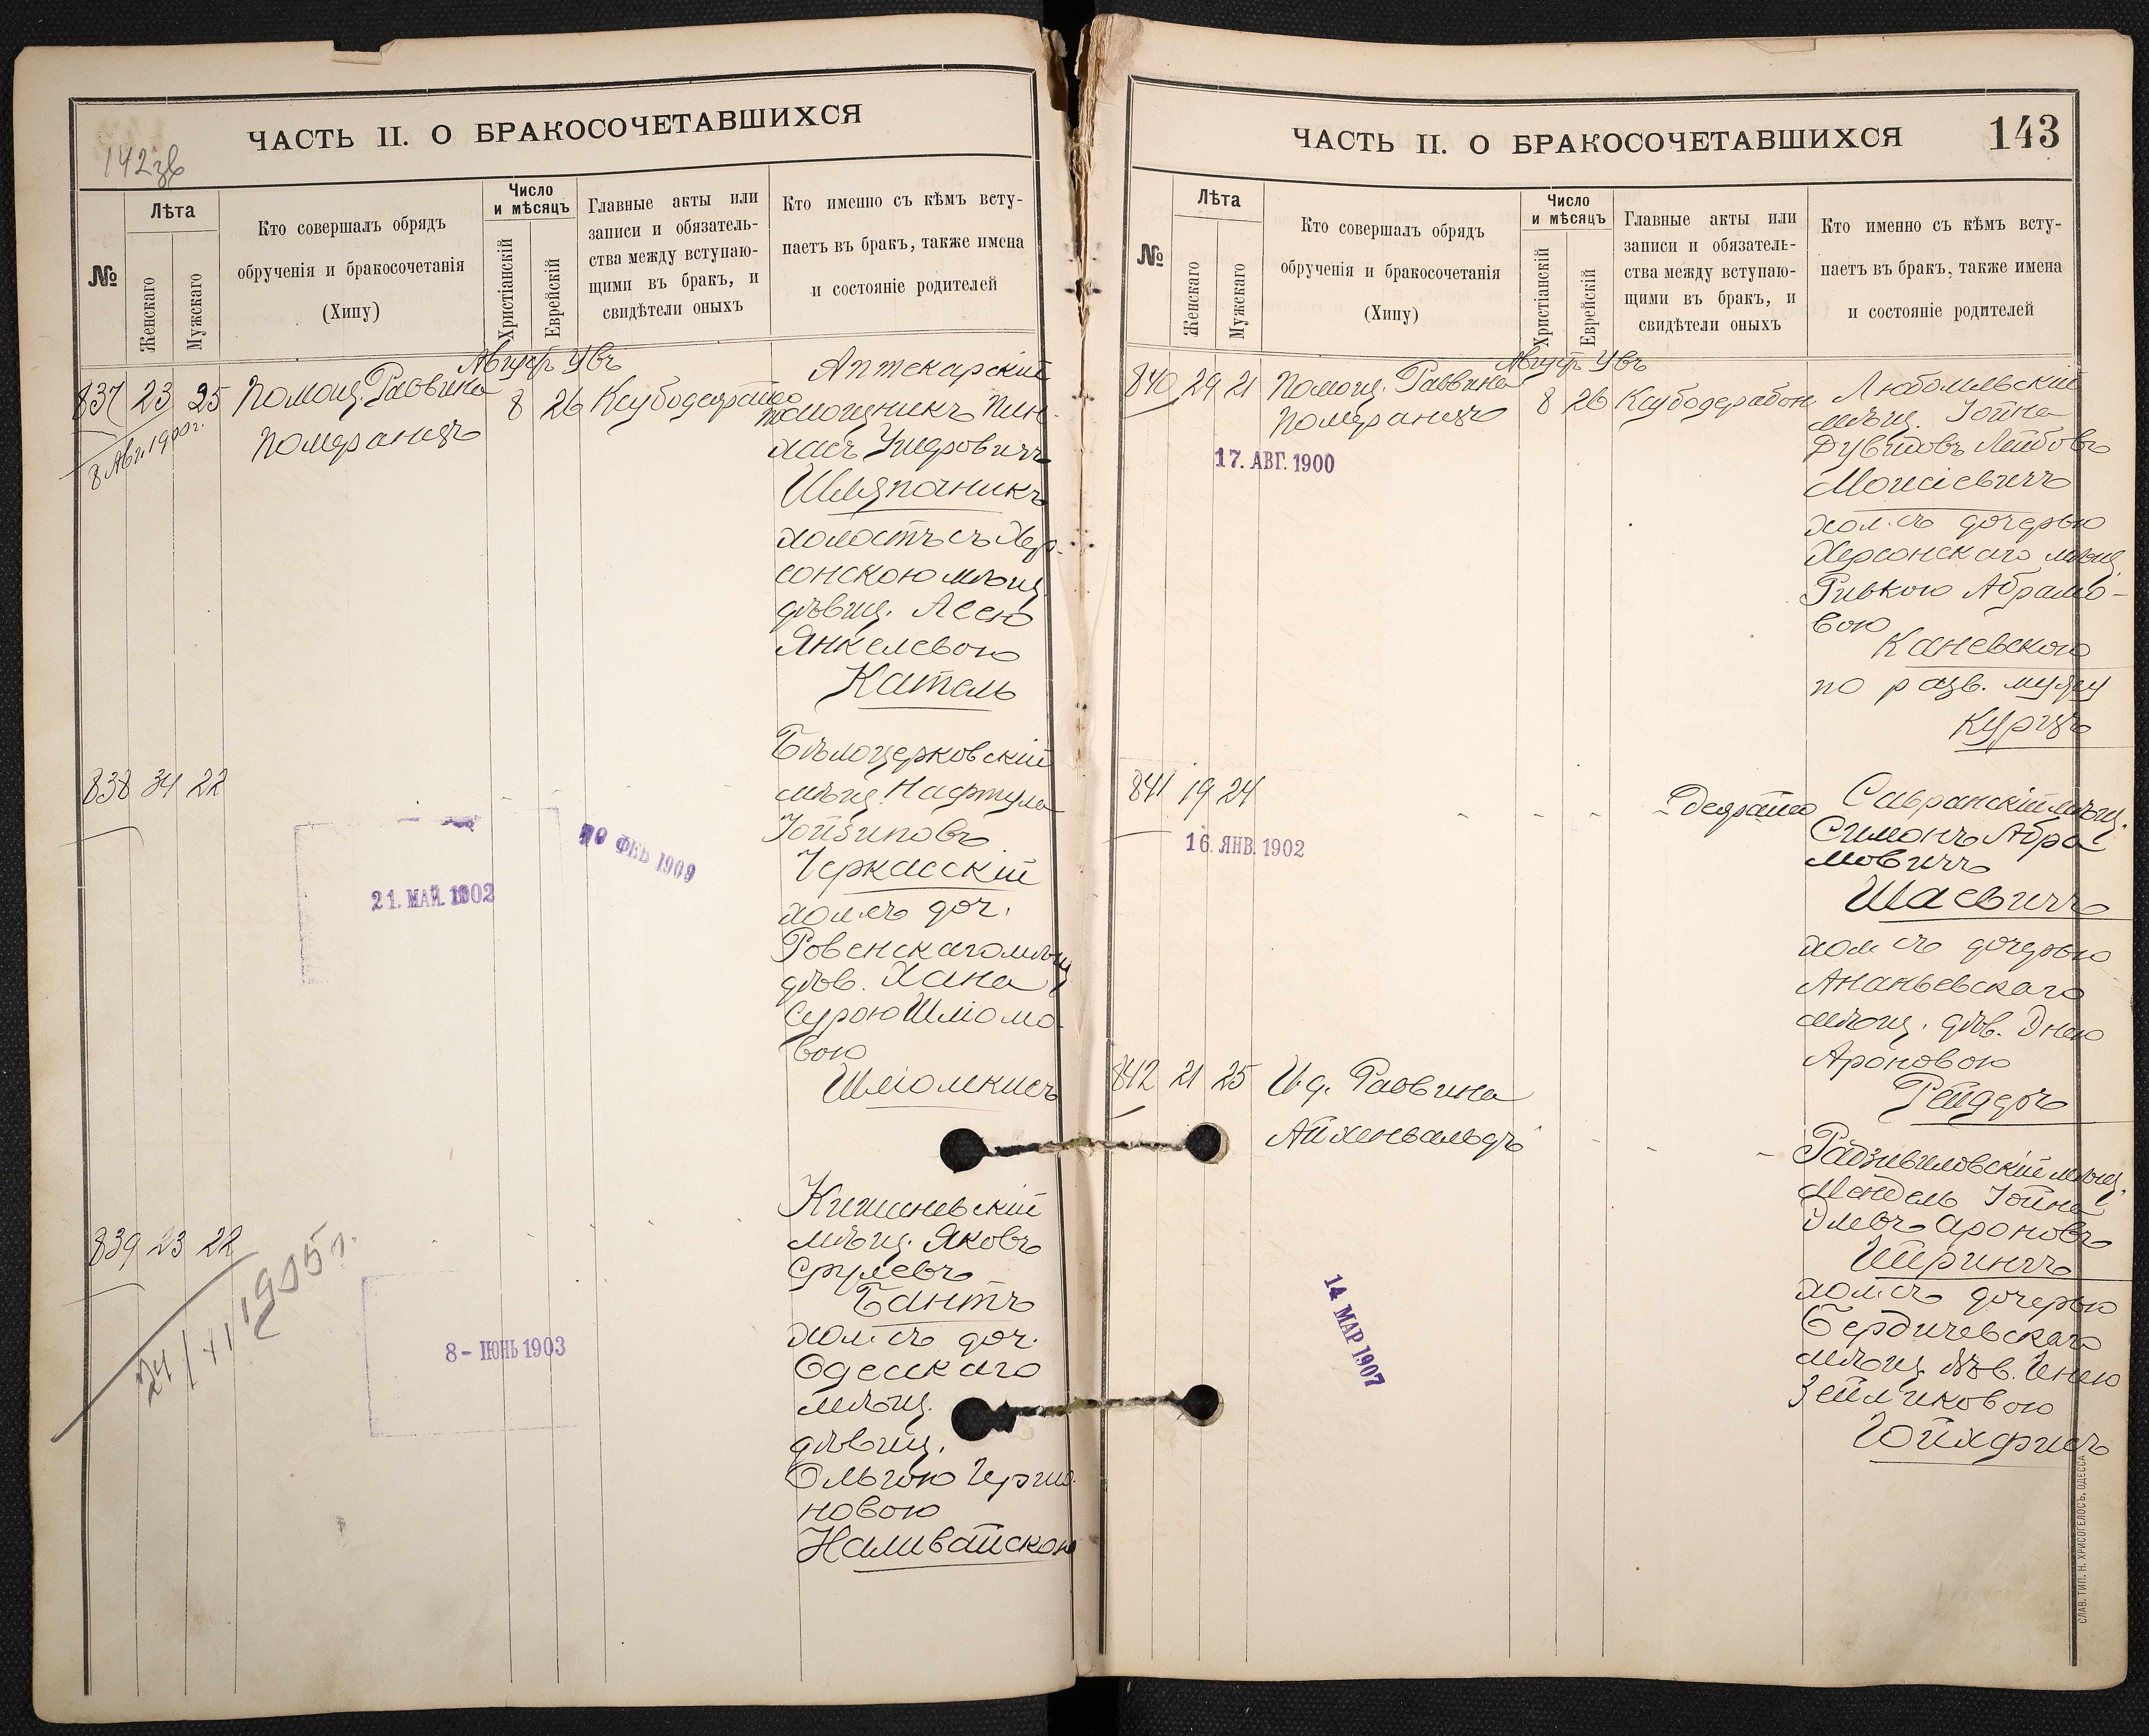 ЧАСТЬ II. О БРАКОСОЧЕТАВШИХСЯ
142 зв
№
Лѣта
Женскаго
Мужскаго
Кто совершалъ обрядъ
обрученія и бракосочетанія
(Хипу)
Число
и мѣсяцъ
Христіанскій
Еврейскій
Главные акты или
записи и обязатель-
ства между вступаю-
щими въ бракъ, и
свидѣтели оныхъ
Кто именно съ кѣмъ всту-
паетъ въ бракъ, также имена
и состояніе родителей
837 23 25 Помощ. Раввина
Померанцъ
8 Авг. 1900 г.
Август Увъ
8 26
Аптекарскій
помощникъ Пин-
хасъ Умеровичъ
Шляпочникъ
холостъ съ Хер-
сонскою мѣщ
дѣвиц. Леею
Янкелевою
Кательь
838 34 22
21. МАЙ. 1902
ФЕВ 1909
Бѣлоцерковскій
мѣщ. Нафтула
Іойзиповъ
Черкасскій
хол. съ доч.
Ровенскаго мѣщ
дѣв. Хана
Сурою Шліомо-
вою
Шліомкисъ
839 23 22
24/XI 1905 г.
8 - ІЮНЬ 1903
Кишиневскій
мѣщ. Яковъ
Срулевъ
Бантъ
хол. съ доч.
Одесскаго
мѣщ.
дѣвиц.
Ольгою Гершо-
новою
Наливайскою
ЧАСТЬ II. О БРАКОСОЧЕТАВШИХСЯ
143
№
Лѣта
Женскаго
Мужскаго
Кто совершалъ обрядъ
обрученія и бракосочетанія
(Хипу)
Число
и мѣсяцъ
Христіанскій
Еврейскій
Главные акты или
записи и обязатель-
ства между вступаю-
щими въ бракъ, и
свидѣтели оныхъ
Кто именно съ кѣмъ всту-
паетъ въ бракъ, также имена
и состояніе родителей
840 29 21 Помощ. Раввина
Померанцъ
Август Увъ
8 26
17. АВГ. 1900
Любомльскій
мѣщ. Іойна
Дувидовъ Лейбовъ
Моисіевичъ
хол. съ дочерью
Херсонскаго мѣщ.
Ривкою Абрамо-
вою
Каневскою
по разв. мужу
Курцъ
841 19 24
16. ЯНВ. 1902
Савранскій мѣщ.
Симонъ Абра-
мовичъ
Шаевичъ
хол. съ дочерью
Ананьевскаго
мѣщ. дѣв. Энею
Ароновою
Рейдеръ
842 21 25 И. д. Раввина
Айхенвальдъ
14 МАР 1907
Радзивиловскій мѣщ.
Мендель Іойна
Элевъ-Ароновъ
Штринъ
хол. съ дочерью
Бердичевскаго
мѣщ. дѣв. Енею
Зейликовою
Юйхфисъ
СЛАВ. ТИП. Н. ХРИСОГЕЛОСЪ, ОДЕССА